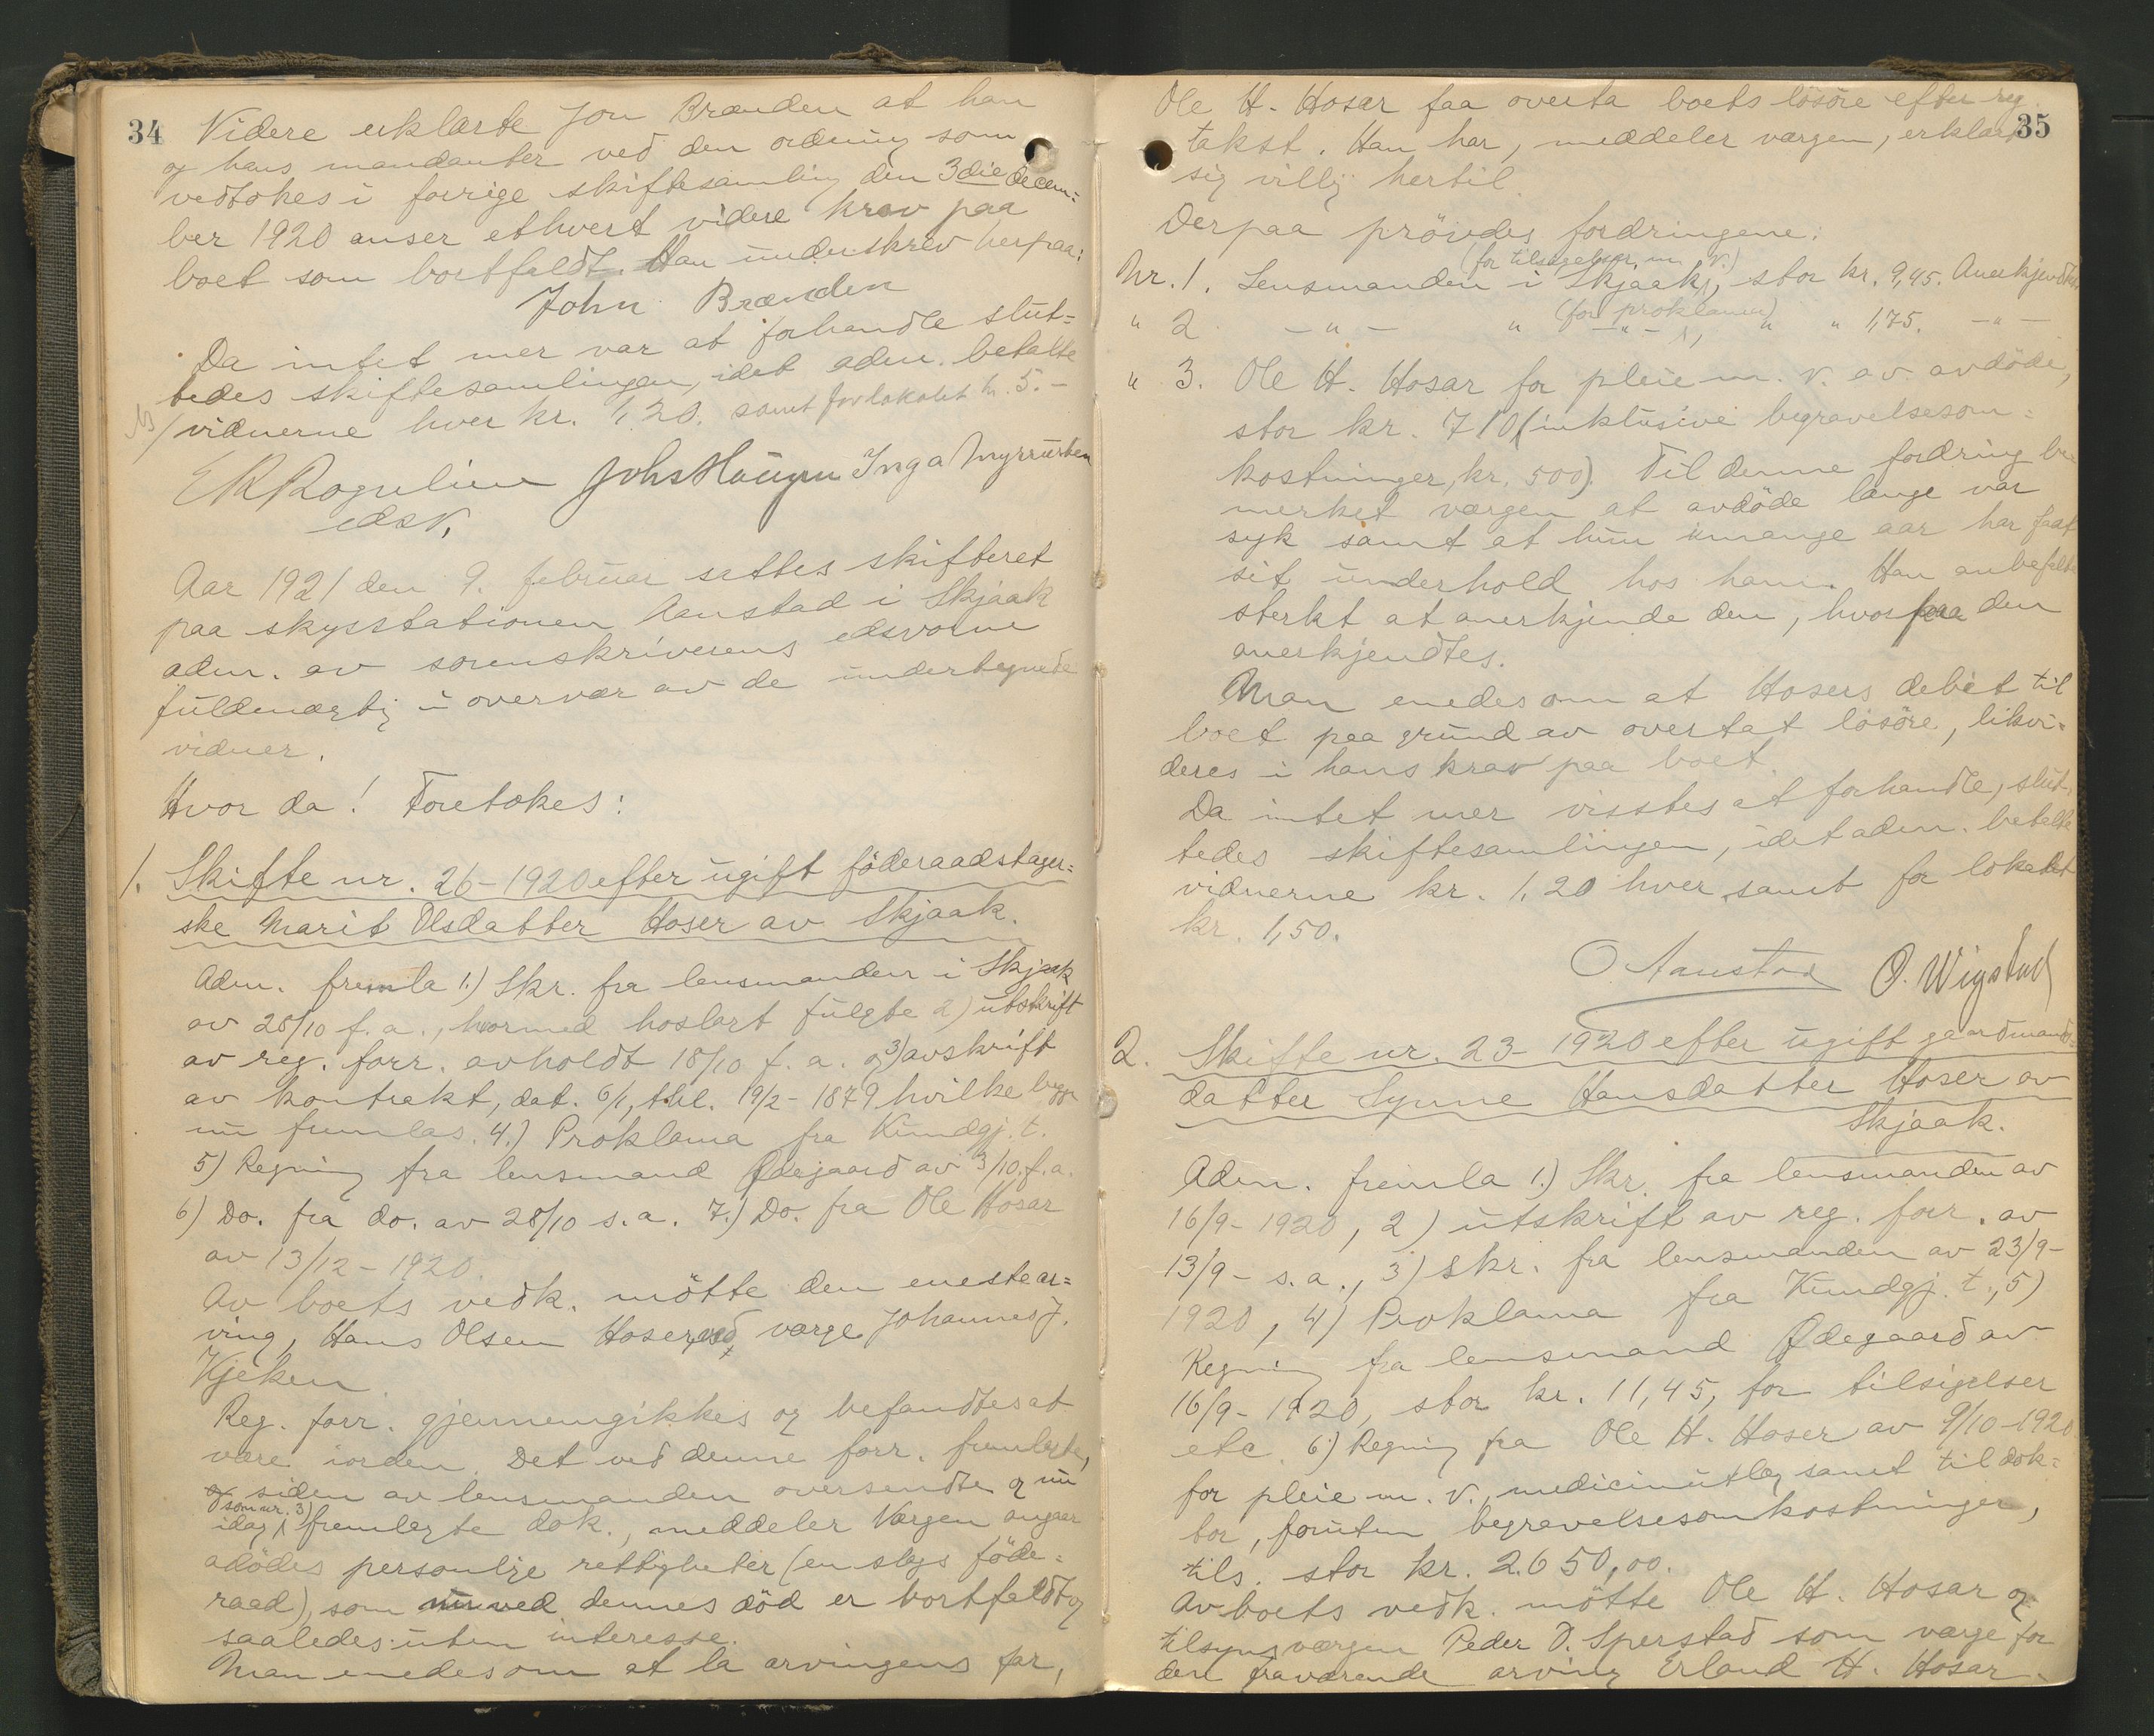 34
Videre erklærte Jon Brænden at han
og hans mandanter ved den ordning som
vedtokes i forrige skiftesamling den 3die decem-
ber 1920 anser ethvert videre krav paa
boet som bortfaldt. Han underskrev herpaa:
John Brænden
Da intet mer var at forhandle slut-
tedes skiftesamlingen, idet adm. betalte
vidnerne hver kr. 1,20. samt for lokalet kr. 5.-
Johs Haugen Inga Myrrusten
edsv.
Aar 1921 den 9. februar sattes skifteret
paa skysstationen Aanstad i Skjaak
adm. av sorenskriverens edsvorne
fuldmægtig i overvær av de undertegnede
vidner.
Hvor da! Foretokes:
1. Skifte nr. 26-1920 efter ugift föderaadstager-
ske Marit Olsdatter Hosar av Skjaak.
Adm. fremla 1.) Skr. fra lensmanden i Skjaak
av 28/10 f.a., hvormed hoslagt fulgte 2) utskrift
av reg. forr. avholdt 18/10 f.a. og 3) avskrift
av kontrakt, dat. 6/1, thl. 19/2-1879 hvilke begge
nu fremlas. 4.) Proklama fra Kundgj. t.
5) Regning fra lensmand Ødegaard av 3/10. f.a.
6) Do. fra do. av 28/10 s.a. 7.) Do. fra Ole Hosar
av 13/12-1920.
Av boets vedk. mötte den eneste ar-
ving, Hans Olsen Hosar, ved værge Johannes J.
Kjeken.
Reg. forr. gjennemgikkes og befandtes at
være iorden. Det ved denne forr. fremlagte,
og siden av lensmanden oversendte og nu
idag (som nr. 3) fremlagte dok., meddeler Værgen angaar
avdödes personlige rettigheter (en slags föde-
raad), som ved dennes död er bortfaldt og
saaledes uten interesse.
Man enedes om at la arvingens far,
35
Ole H. Hosar faa overta boets lösöre efter reg.
takst. Han har, meddeler værgen, erklært
sig villig hertil.
Derpaa prövedes fordringene:
Nr. 1. Lensmanden i Skjaak (for tilsigelser m. v.), stor kr. 9,45. Anerkjendtes
" 2 - " - " - " - (for proklama), " " 1,75. - " -
" 3. Ole H. Hosar for pleie m. v. av avdöde,
stor kr. 710 (inklusive begravelsesom-
kostninger, kr. 500). Til denne fordring be-
merket værgen at avdöde længe var
syk samt at hun i mange aar har faat
sit underhold hos ham. Han anbefalte
sterkt at anerkjende den, hvorpaa den
anerkjendtes.
Man enedes om at Hosars debet til
boet paa grund av overtat lösöre, likvi-
deres i hans krav paa boet.
Da intet mer visstes at forhandle, slut-
tedes skiftesamlingen, idet adm. betalte
vidnerne kr. 1,20 hver, samt for lokalet
kr. 1,50.
O Aanstad O. Wigstad
2. Skifte nr. 23-1920 efter ugift gaardmands-
datter Synne Hansdatter Hosar av
Skjaak.
Adm. fremla 1.) Skr. fra lensmanden av
16/9-1920, 2) utskrift av reg. forr. av
13/9- s.a., 3) skr. fra lensmanden av 23/9-
1920, 4) Proklama fra Kundgj. t., 5)
Regning fra lensmand Ødegaard av
16/9-1920, stor kr. 11,45, for tilsigelser
etc. 6.) Regning fra Ole H. Hosar av 9/10-1920
for pleie m. v., medicinutlæg samt til dok-
tor, foruten begravelsesomkostninger,
tils. stor kr. 2.650,00.
Av boets vedk. mötte Ole H. Hosar og
tilsynsværgen Peder O. Sperstad som værge for
den fraværende arving Erland H. Hosar.